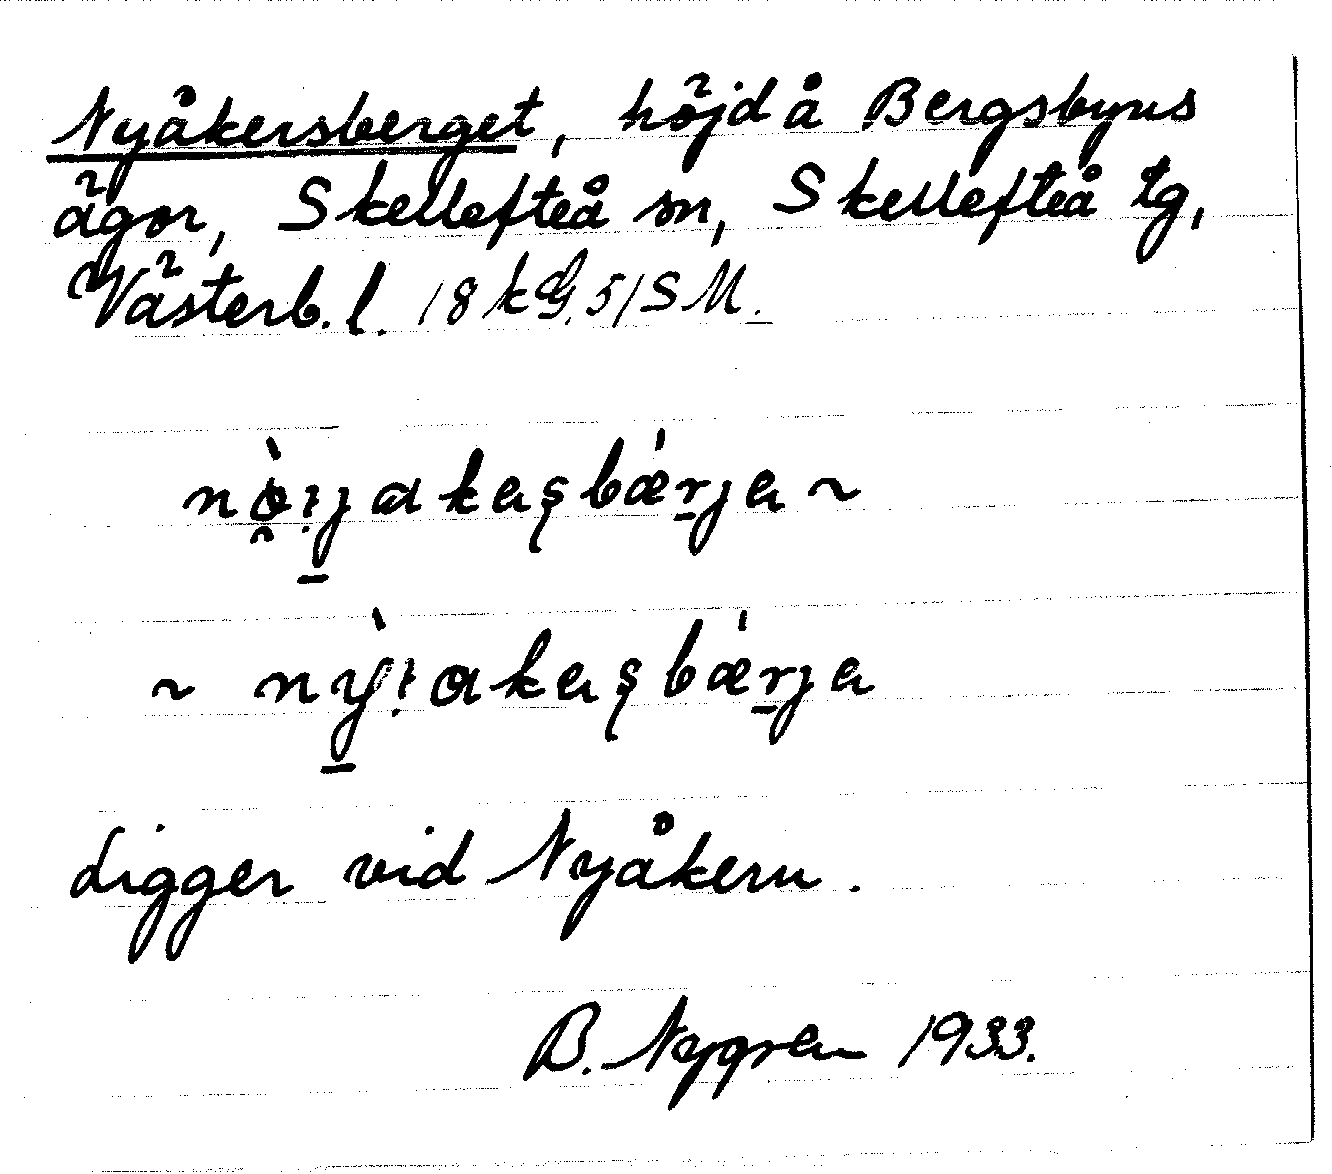 Nyåkersberget, höjd å Bergsbyns
ägor, Skellefteå sn, Skellefteå tg,
Västerb. l. 18 k G. 51 S M.
nò̯ı̣j̱akaʂbǽṟja ~
~ nỳ̱ı̣akaʂbǽṟja
Ligger vid Nyåkern.
B. Nygren 1933.